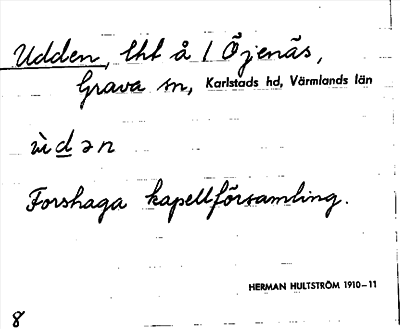 Udden, lht å 1 Öjenäs,
Grava sn, Karlstads hd, Värmlands län
ùdən
Forshaga kapellförsamling.
HERMAN HULTSTRÖM 1910–11
8